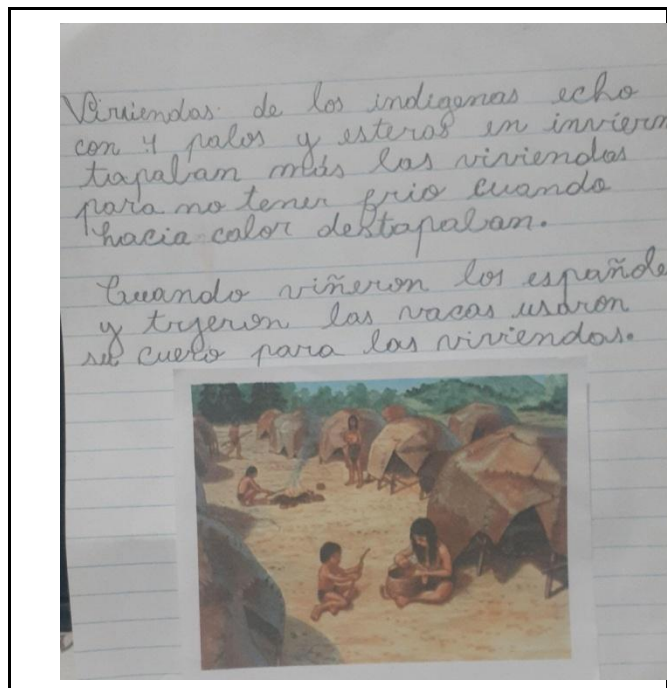 Viviendas de los indigenas echo
con 4 palos y esteras en inviern
tapaban más las viviendas
para no tener frio cuando
hacia calor destapaban.
Cuando viñeron los españole
y trjeron las vacas usaron
su cuero para las viviendas.